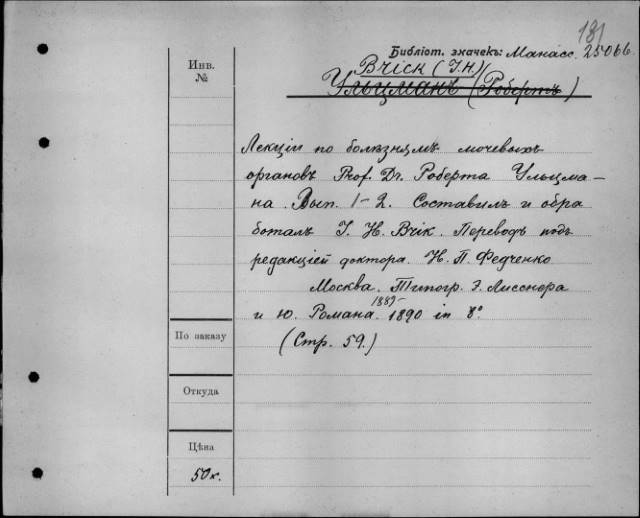 181
Библіот. значекъ: Манасс. 25066.
Инв. №
Вчіск (I.H.)
Ульцманъ (Робертъ)
Лекціи по болѣзнямъ мочевыхъ
органовъ Prof. Dr. Роберта Ульцма-
на. Вып. 1-2. Составилъ и обра
боталъ I. H. Вчік. Переводъ подъ
редакціей доктора Н. П. Федченко
Москва. Типогр. Э. Лисснера
и Ю. Романа. 1889- 1890 in 8°.
(Стр. 59.)
По заказу
Откуда
Цѣна
50 к.